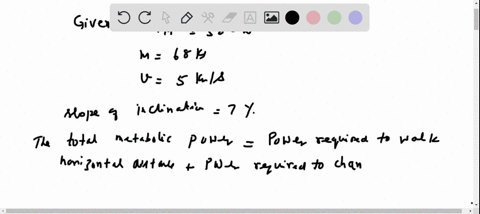 Given
M = 68 kg
V = 5 km/h
slope of inclination = 7 %.
The total metabolic power = Power required to walk
horizontal + Power required to chan